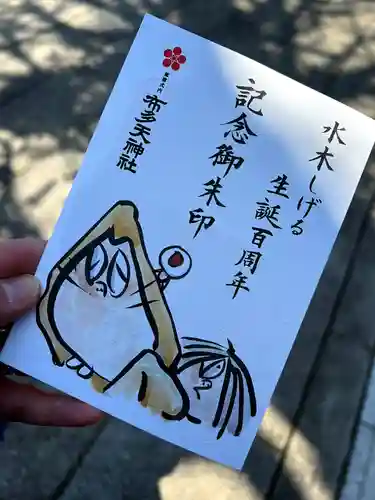 水木しげる
生誕百周年
記念御朱印
布多天神社